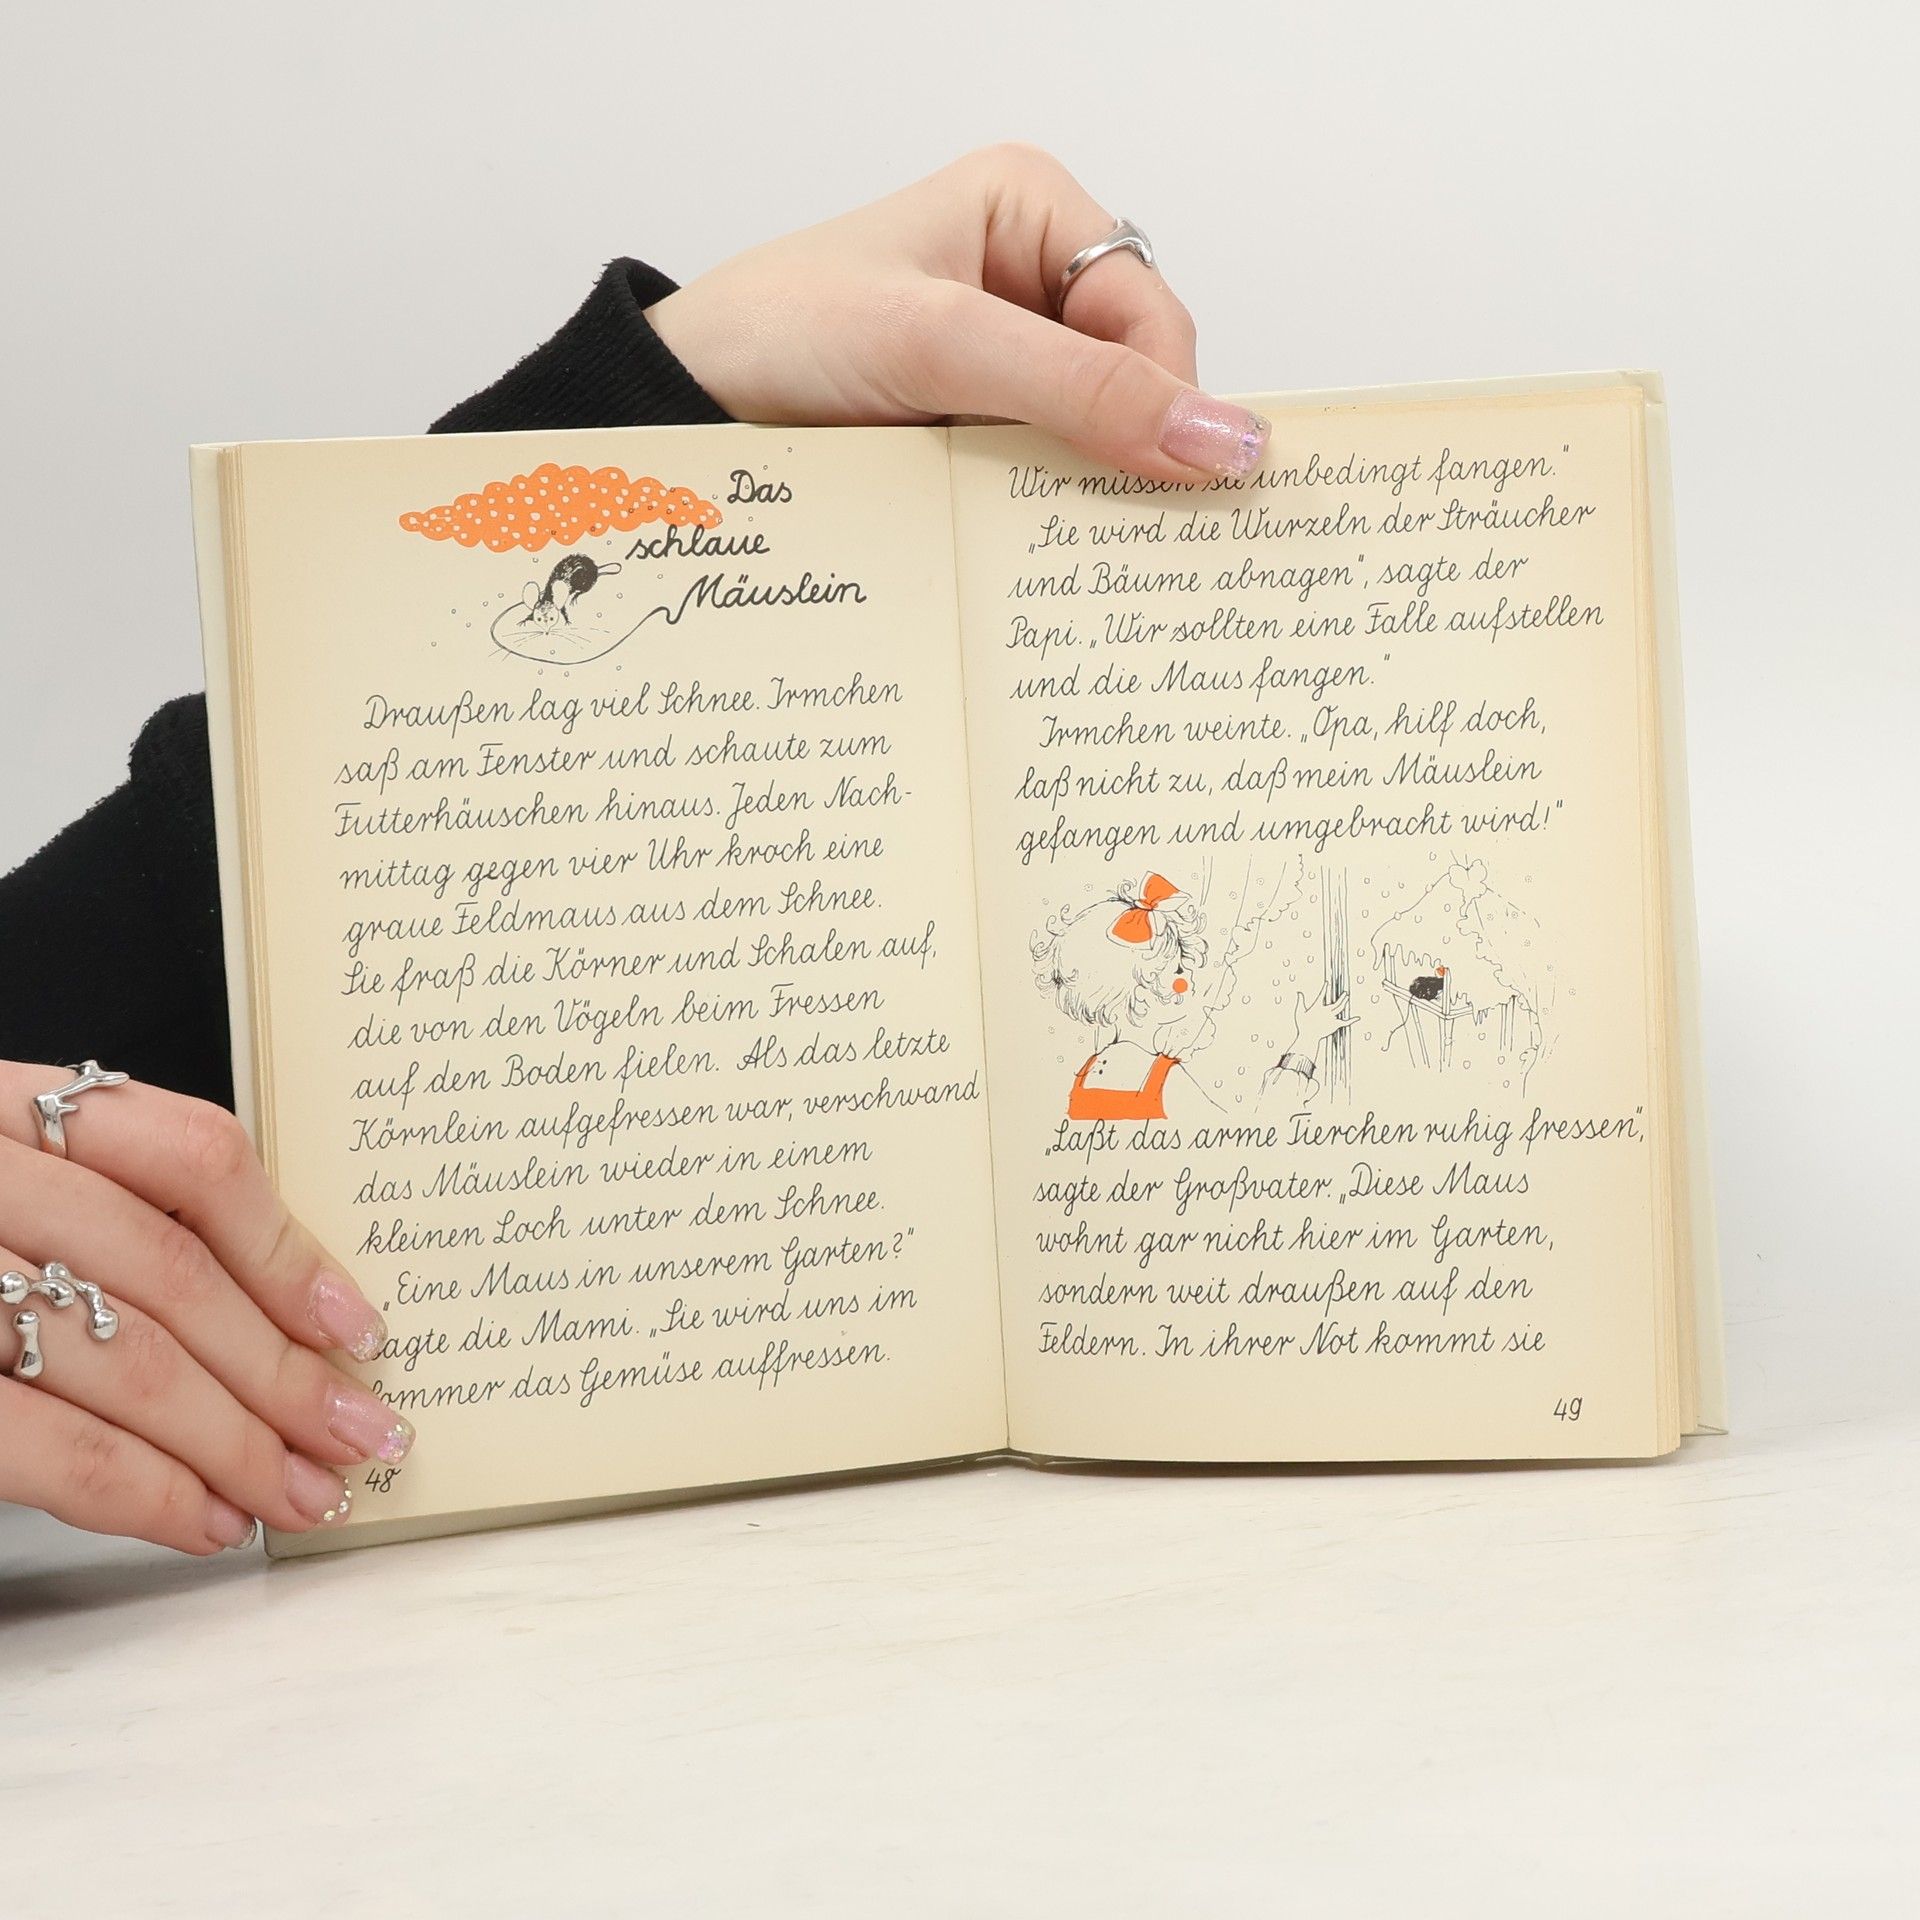 Das
schlaue
Mäuslein
Draußen lag viel Schnee. Irmchen
saß am Fenster und schaute zum
Futterhäuschen hinaus. Jeden Nach-
mittag gegen vier Uhr kroch eine
graue Feldmaus aus dem Schnee.
Sie fraß die Körner und Schalen auf,
die von den Vögeln beim Fressen
auf den Boden fielen. Als das letzte
Körnlein aufgefressen war, verschwand
das Mäuslein wieder in einem
kleinen Loch unter dem Schnee.
„Eine Maus in unserem Garten?"
sagte die Mami. „Sie wird uns im
Sommer das Gemüse auffressen.
48
Wir müssen sie unbedingt fangen."
„Sie wird die Wurzeln der Sträucher
und Bäume abnagen", sagte der
Papi. „Wir sollten eine Falle aufstellen
und die Maus fangen."
Irmchen weinte. „Opa, hilf doch,
laß nicht zu, daß mein Mäuslein
gefangen und umgebracht wird!"
„Laßt das arme Tierchen ruhig fressen",
sagte der Großvater. „Diese Maus
wohnt gar nicht hier im Garten,
sondern weit draußen auf den
Feldern. In ihrer Not kommt sie
49